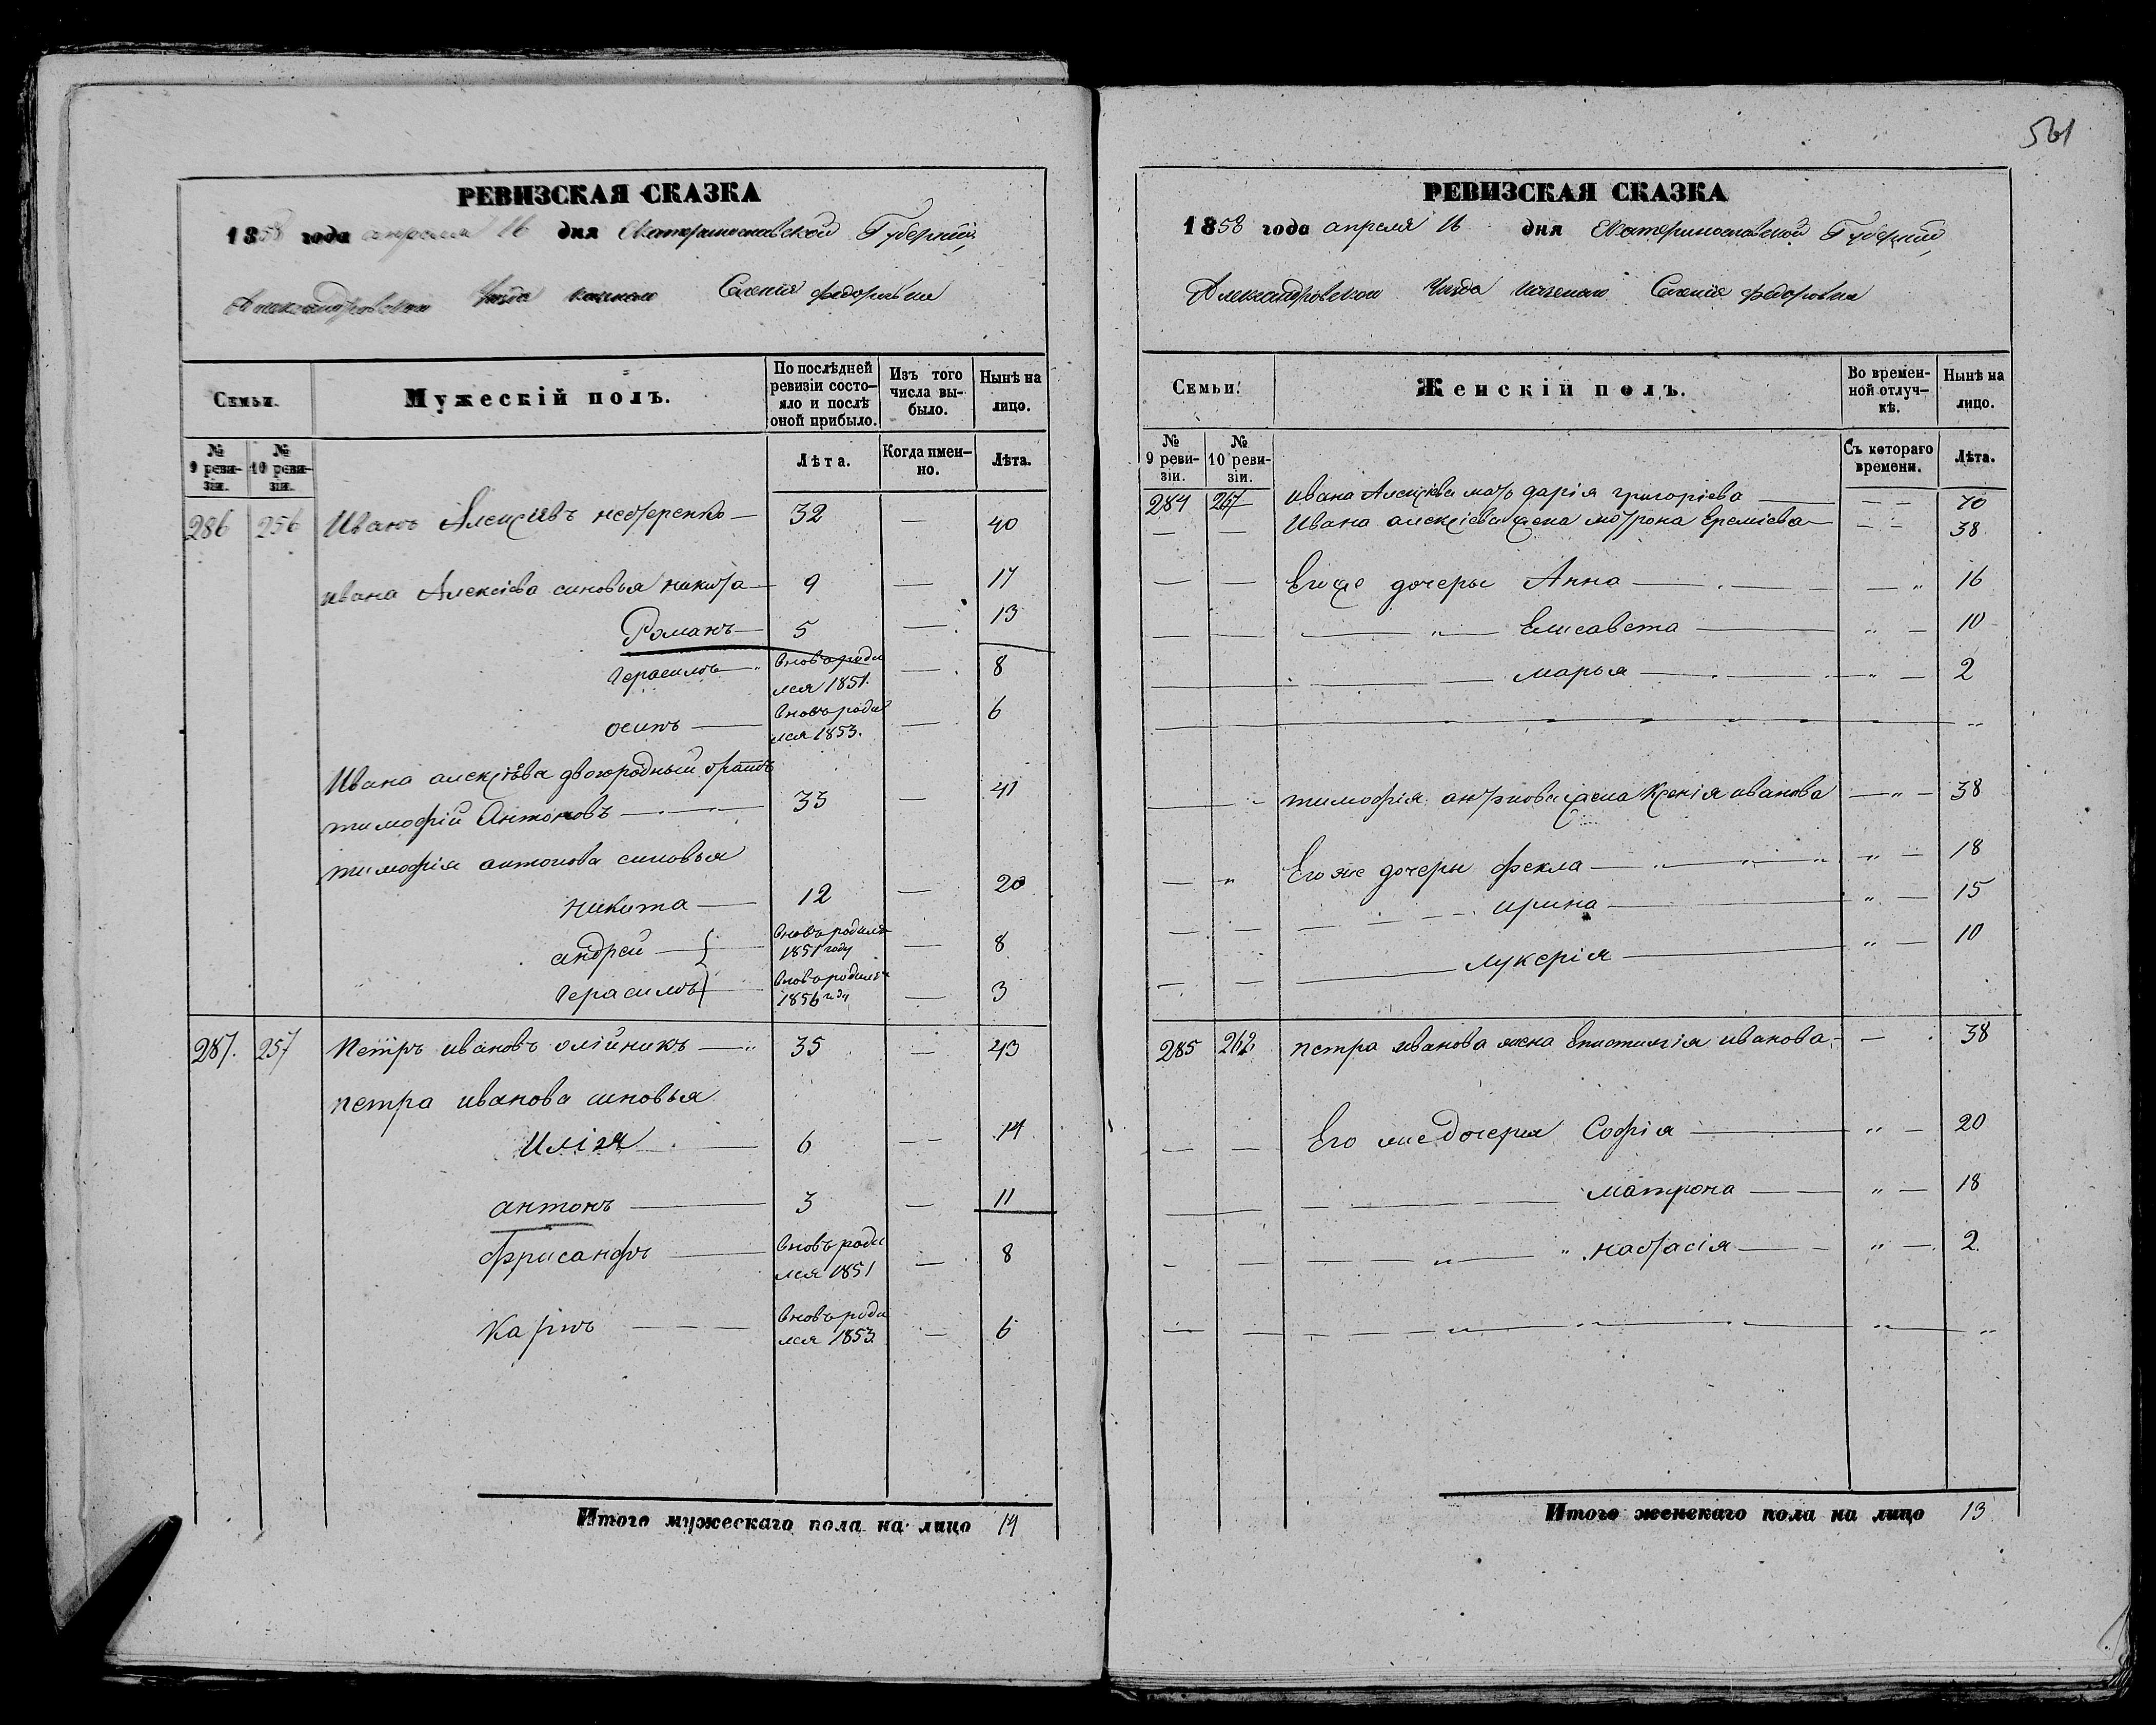 561
РЕВИЗСКАЯ СКАЗКА
1858 года апреля 16 дня Екатеринославской Губерніи
Александровскаго Уезда Селенія федоровки
Семьи.
Мужескій полъ.
По послѣдней ревизіи состояло и послѣ оной прибыло.
Изъ того числа выбыло.
Нынѣ на лицо.
№ 9 ревизіи.
№ 10 ревизіи.
Лѣта.
Когда именно.
Лѣта.
286 256 Иванъ Алексѣивъ нестеренко — 32 — 40
ивана Алексіева синовья никита — 9 — 17
Романъ — 5 — 13
Герасимъ — вновь родился 1851. — 8
осипъ — вновь родился 1853. — 6
Ивана алексіѣва двоюродный братъ
тимофій Антоновъ — 33 — 41
тимофія антонова синовья
никита — 12 — 20
андрей — вновь родился 1851 году — 8
Герасимъ вновь родился 1856 году — 3
287. 257 Петръ ивановъ олійникъ — 35 — 43
петра иванова синовья
Илія — 6 — 14
антонъ — 3 — 11
фрисанфъ — вновь родился 1851 — 8
Карпъ — вновь родился 1853 — 6
Итого мужескаго пола на лицо 14
РЕВИЗСКАЯ СКАЗКА
1858 года апреля 16 дня Екатеринославской Губерніи
Александровскаго Уезда Селенія федоровки
Семьи.
Женскій полъ.
Во временной отлучкѣ.
Нынѣ на лицо.
№ 9 ревизіи.
№ 10 ревизіи.
Съ котораго времени.
Лѣта.
284 267 ивана Алексіева мать дарія григоріева — 70
Ивана алексіева жена мотрона Ереміева — 38
Егоже дочеры Анна — 16
Елисавета — 10
марья — 2
тимофія антонова жена Ксенія иванова — 38
Егоже дочеры фекла — 18
ирина — 15
лукерія — 10
285 262 петра иванова жена Епистимія иванова — 38
Его же дочерия Софія — 20
матрона — 18
настасія — 2
Итого женскаго пола на лицо 13